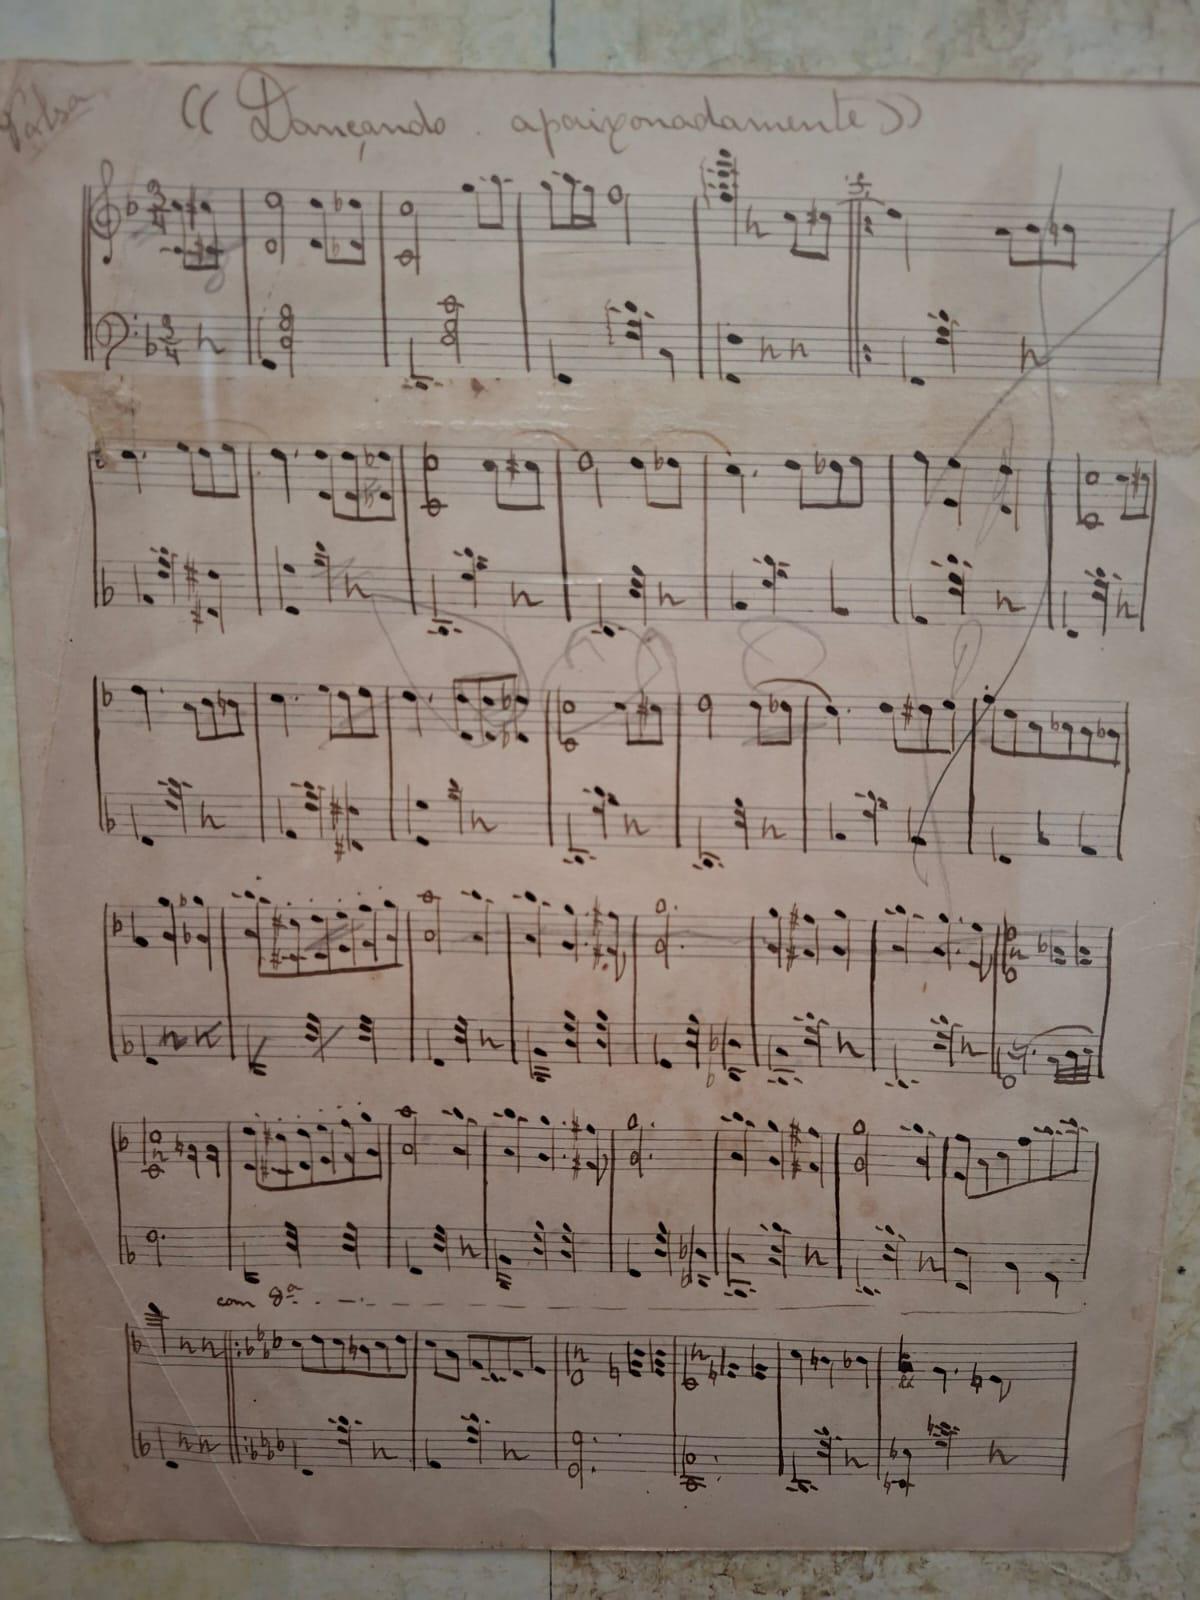 Valsa
(( Dançando apaixonadamente ))
3/4
3/4
com 8ª